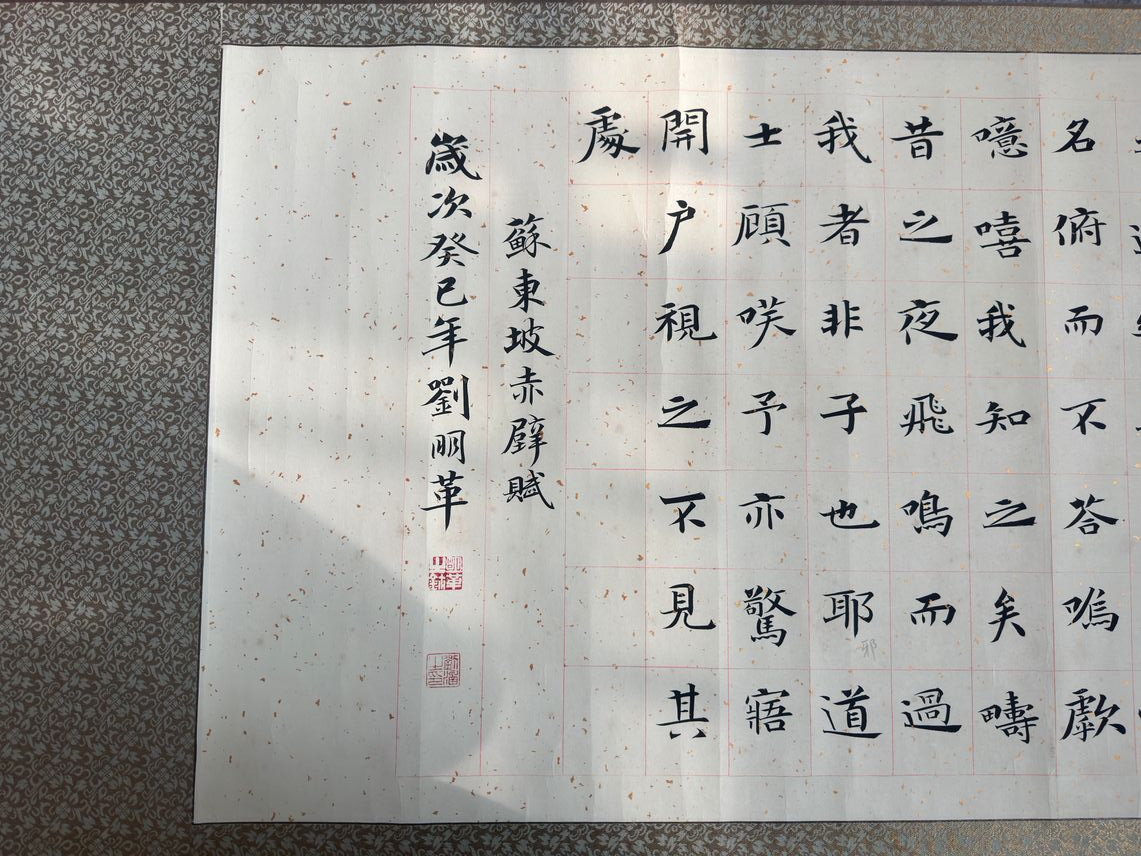 名俯而不荅嗚歔
噫嘻我知之矣疇
昔之夜飛鳴而過
我者非子也耶道
邪
士顧咲予亦驚寤
開户視之不見其
處
蘇東坡赤壁賦
歲次癸巳年劉明革